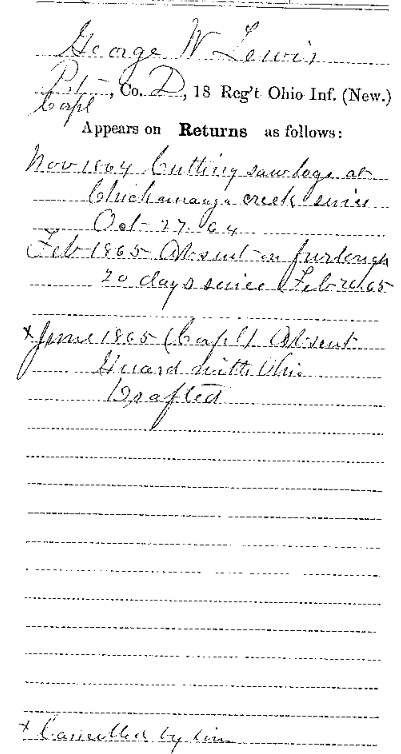 George W Lewis
Pvt, Co. D, 18 Reg't Ohio Inf. (New.)
Corpl
Appears on Returns as follows:
Nov 1864 Cutting saw logs at
Chickamauga creek since
Oct 27 64
Feb 1865 Absent on furlough
20 days since Feb 65
x June 1865 (Corpl) Absent
Guard with Ohio
Drafted
x Cancelled by